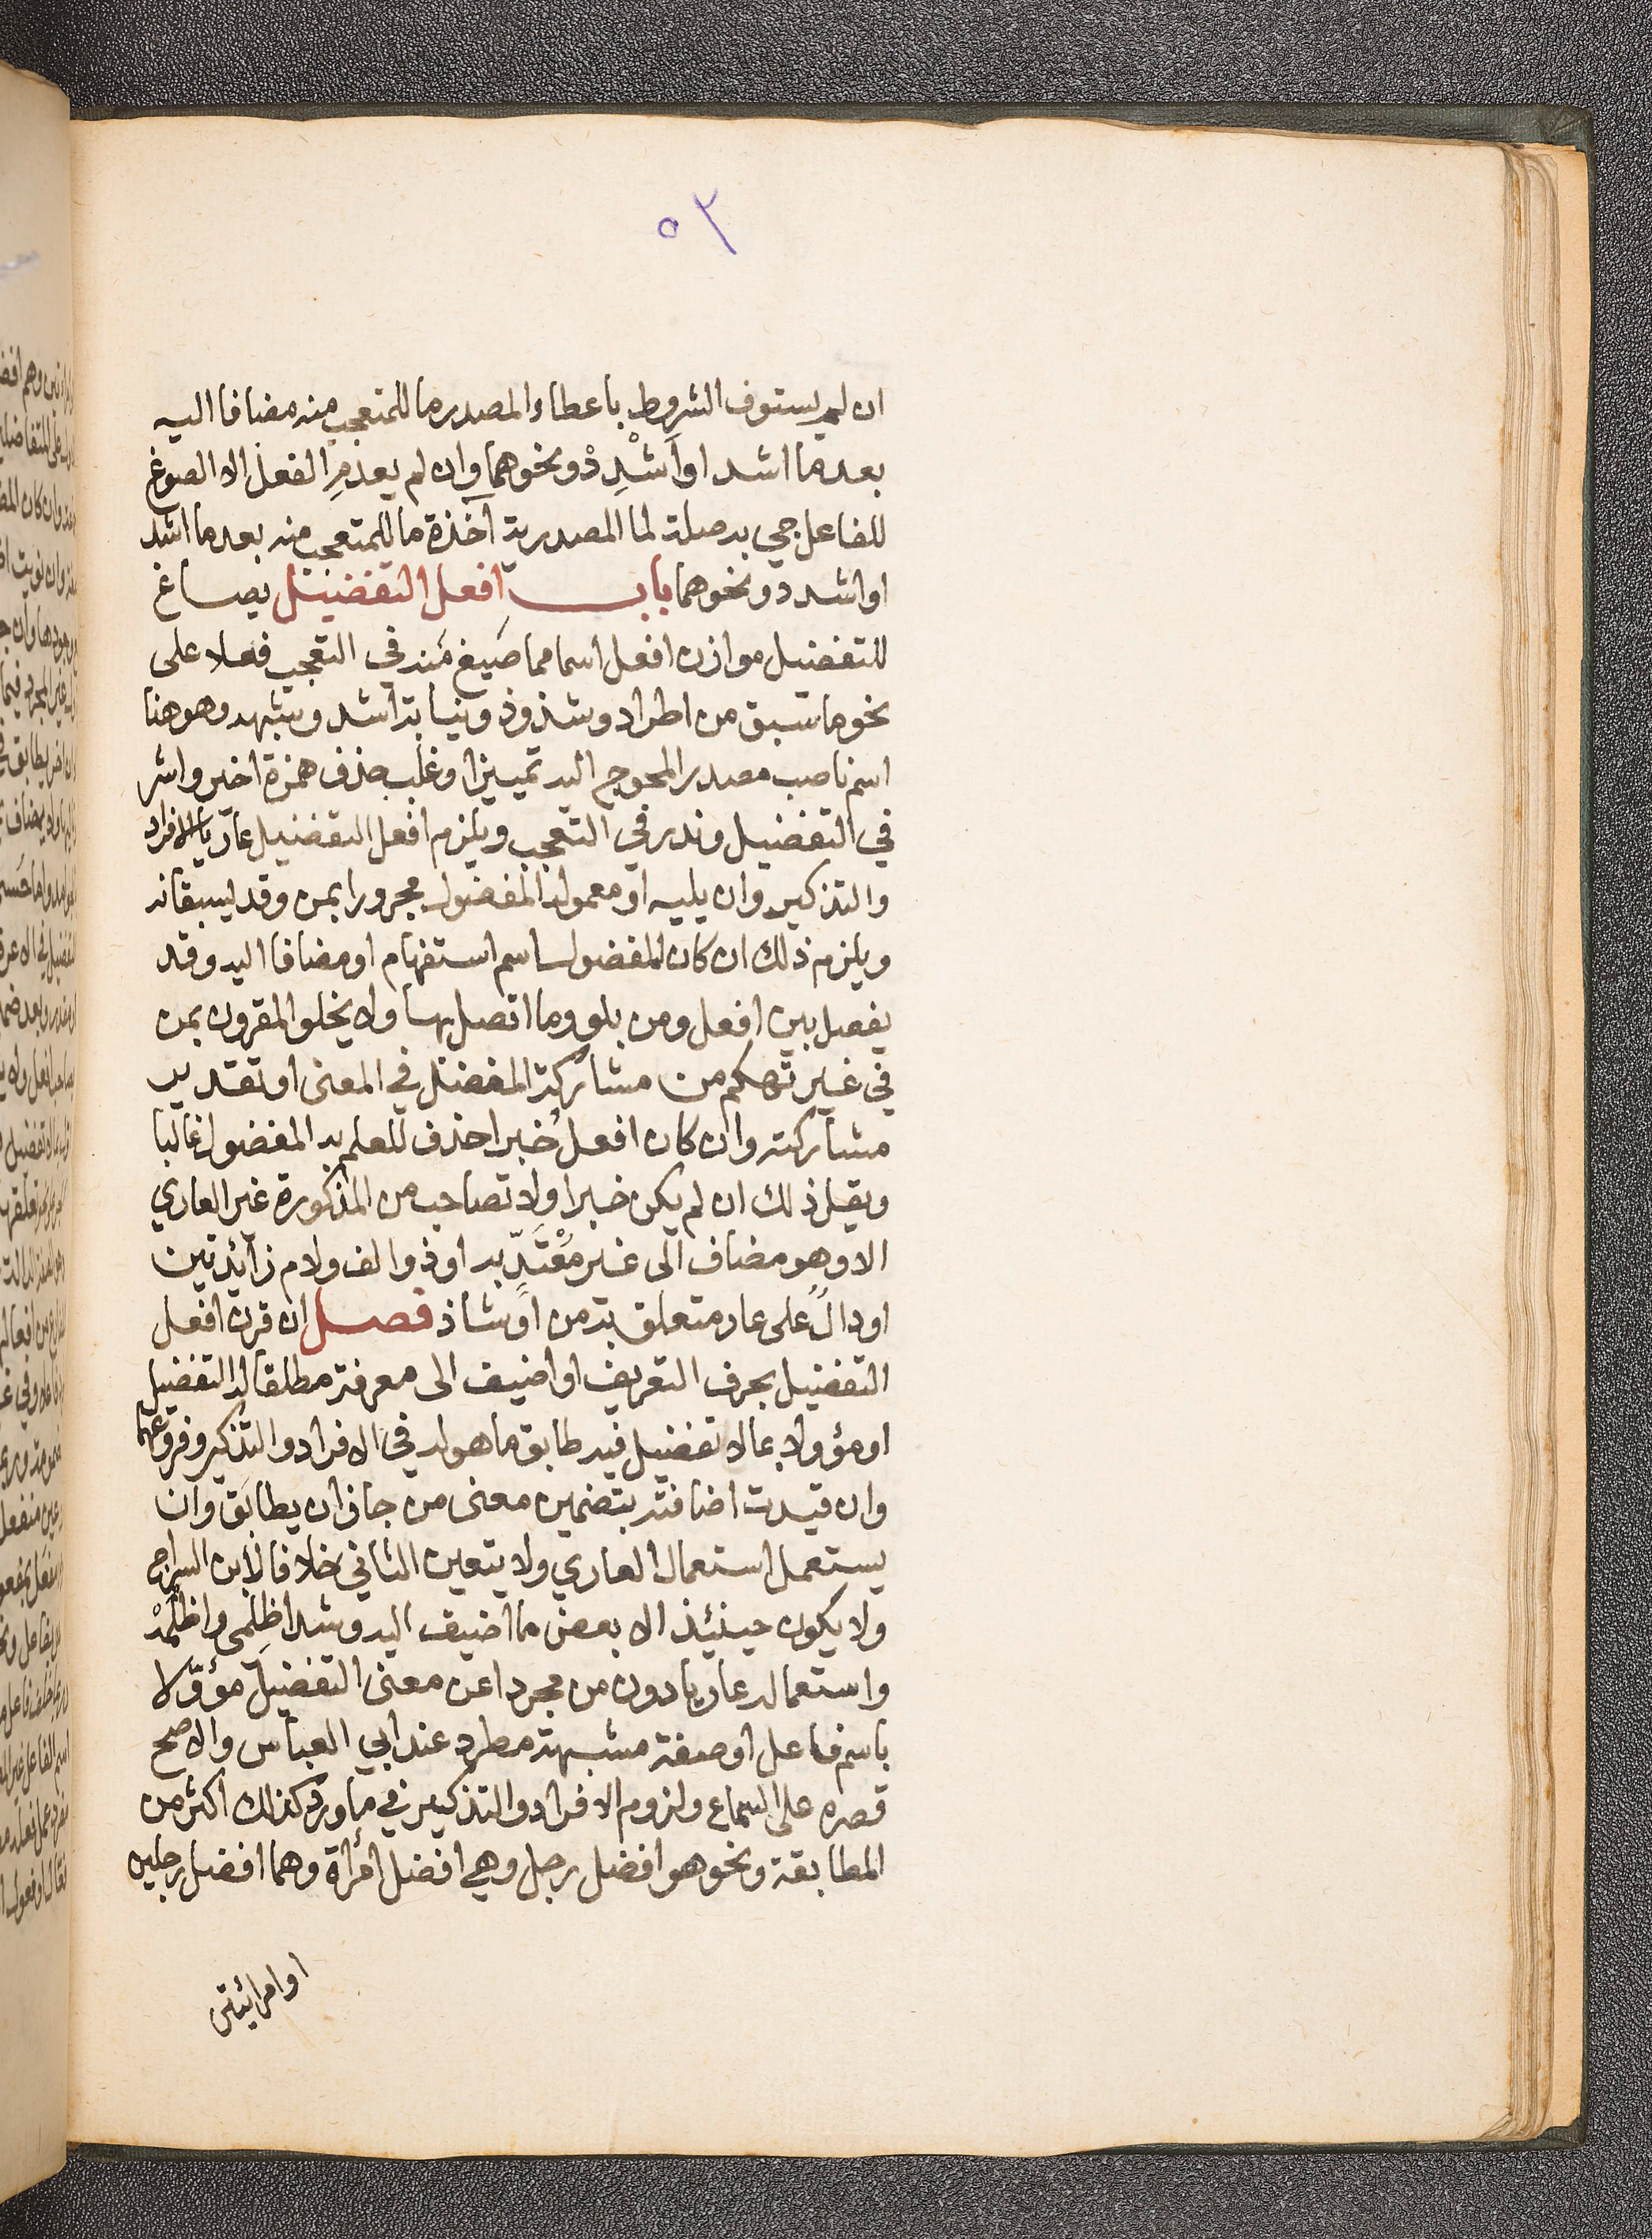 ٥٢
ان لم يستوف الشروط باعطاء المصدر ما للمتعجب منه مضافا اليه
بعد ما اشد او أَشْدِدْ ونحوهما وان لم يعدم الفعل الا الصوغ
للفاعل جي به صلة لما المصدرية آخذة ما للمتعجب منه بعد ما اشد
او اشدد ونحوهما باب افعل التفضيل يصاغ
للتفضيل موازن افعل اسما مما صيغ منه في التعجب فعلا على
نحو ما سبق من اطراد وشذوذ ونيابة اشد وشبهه وهو هنا
اسم ناصب مصدر المحوج اليه تمييزا وغلب حذف همزة اخير واشر
في التفضيل وندر في التعجب ويلزم افعل التفضيل عاريا الافراد
والتذكير وان يليه او معموله المفضول مجرورا بمن وقد يسبقانه
ويلزم ذلك ان كان المفضول اسم استفهام او مضافا اليه وقد
يفصل بين افعل ومن بلو وما اتصل بها ولا يخلو المقرون بمن
في غير تهكم من مشاركة المفضل في المعنى او تقدير
مشاركته وان كان افعل خبرا حذف للعلم به المفضول غالبا
ويقل ذلك ان لم يكن خبرا ولا تصاحب من المذكورة غير العاري
الا وهو مضاف الى غير مُعْتَدّ به او ذو الف ولام زائدتين
او دالٌ على عار متعلق به من او شاذ فصل ان قرن افعل
التفضيل بحرف التعريف او اضيف الى معرفة مطلقا له التفضيل
او مؤولا بما لا تفضيل فيه طابق ما هو له في الافراد والتذكير وفروعهما
وان قيدت اضافته بتضمين معنى من جاز ان يطابق وان
يستعمل استعمال العاري ولا يتعين الثاني خلافا لابن السراج
ولا يكون حينئذ الا بعض ما اضيف اليه وشذ اظلمى واظلمه
واستعماله عاريا دون من مجردا عن معنى التفضيل مؤوّلا
باسم فاعل او صفة مشبهة مطرد عند ابي العباس والاصح
قصره على السماع ولزوم الافراد والتذكير في ما ورد كذلك اكثر من
المطابقة ونحو هو افضل رجل وهي افضل امرأة وهما افضل رجلين
او امرائيتن